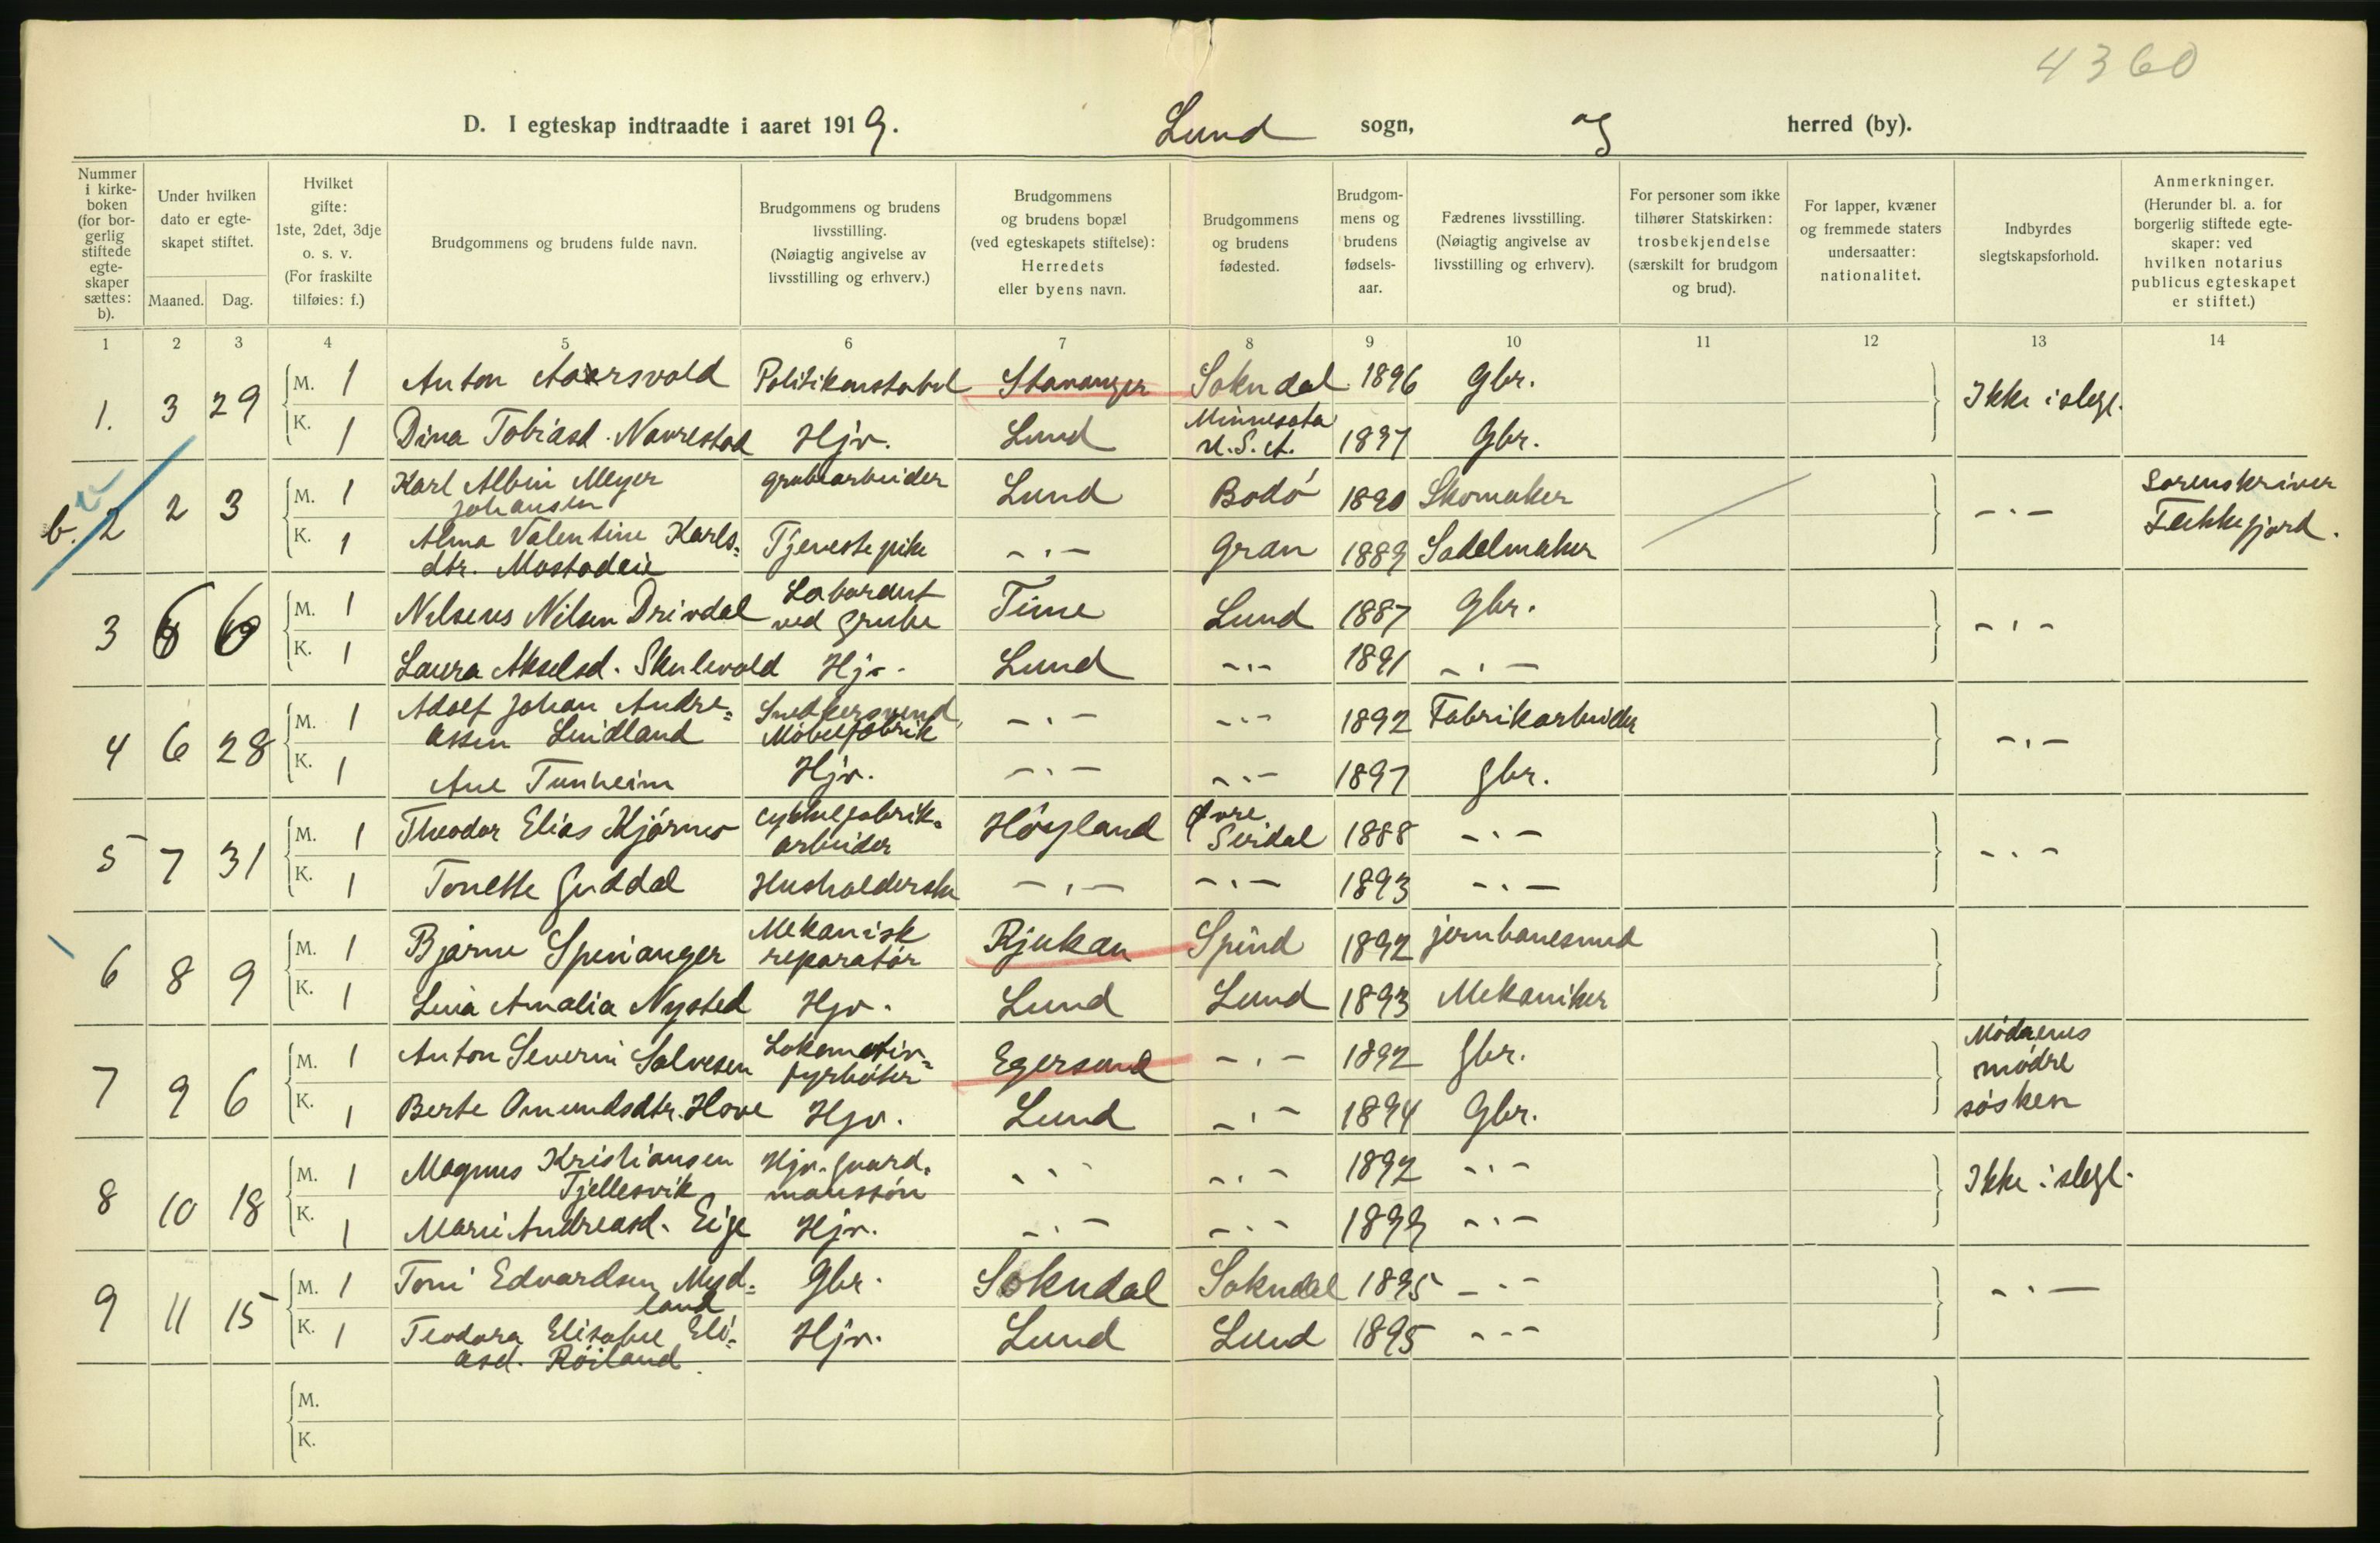 4360
D. I egteskap indtraadte i aaret 1919. Lund sogn, og herred (by).
Nummer i kirke-boken (for bor-gerlig stiftede egte-skaper sættes: b).
Under hvilken dato er egte-skapet stiftet.
Maaned. Dag.
Hvilket gifte: 1ste, 2det, 3dje o. s. v. (For fraskilte tilføies: f.)
Brudgommens og brudens fulde navn.
Brudgommens og brudens livsstilling. (Nøiagtig angivelse av livsstilling og erhverv.)
Brudgommens og brudens bopæl (ved egteskapets stiftelse): Herredets eller byens navn.
Brudgommens og brudens fødested.
Brudgom-mens og brudens fødsels-aar.
Fædrenes livsstilling. (Nøiagtig angivelse av livsstilling og erhverv).
For personer som ikke tilhører Statskirken: trosbekjendelse (særskilt for brudgom og brud).
For lapper, kvæner og fremmede staters undersaatter: nationalitet.
Indbyrdes slegtskapsforhold.
Anmerkninger. (Herunder bl. a. for borgerlig stiftede egte-skaper: ved hvilken notarius publicus egteskapet er stiftet.)
1 2 3 4 5 6 7 8 9 10 11 12 13 14
1. 3 29 M. 1 Anton Aarsvold Politikonstabel Stavanger Sokndal 1896 Gbr. Ikke i slegt.
K. 1 Dina Tobiasd. Navrestad Hjv. Lund Minnesota U.S.A. 1897 Gbr.
b. 2 2 3 M. 1 Karl Albin Meyer Johansen grubearbeider Lund Bodó 1890 Skomaker -·- Sorenskriver Flekkefjord.
K. 1 Alma Valentine Karls=
dtr. Mostadeie Tjenestepike -·- Gran 1889 Sadelmaker
3 6 6 M. 1 Nilsenes Nilsen Drivdal Laborant ved grube Time Lund 1887 Gbr. -·-
K. 1 Laura Akselsd. Skulevold Hjv. Lund -·- 1891 -·-
4 6 28 M. 1 Adolf Johan Andre=
assen Lindland Snedkersvend, Möbelfabrik -·- -·- 1892 Fabrikarbeider -·-
K. 1 Ane Tunheim Hjv. -·- -·- 1897 gbr.
5 7 31 M. 1 Theodor Elias Kjörnes cykkelfabrik=
arbeider Höyland Øvre Sirdal 1888 -·- -·-
K. 1 Tonette Guddal Husholderske -·- -·- 1893 -·-
6 8 9 M. 1 Bjarne Spinanger Mekanisk reparatör Rjukan Spind 1892 jernbanesmed
K. 1 Lina Amalia Nysted Hjv. Lund Lund 1893 Mekaniker
7 9 6 M. 1 Anton Severin Salvesen Lokomotiv=
fyrböter Egersund -·- 1892 gbr. Mödrenes mödre sösken
K. 1 Berte Omundsdtr. Hove Hjv. Lund -·- 1894 Gbr.
8 10 18 M. 1 Magnus Kristiansen Tjellesvik Hjv. gaard=
manssön -·- -·- 1892 -·- Ikke i slegt.
K. 1 Marie Andreasd. Eige Hjv. -·- -·- 1899 -·-
9 11 15 M. 1 Toni Edvardsen Myd=
land Gbr. Sokndal Sokndal 1895 -·- -·-
K. 1 Teodora Elisabe Eli=
asd. Röiland. Hjv. Lund Lund 1895 -·-
M.
K.